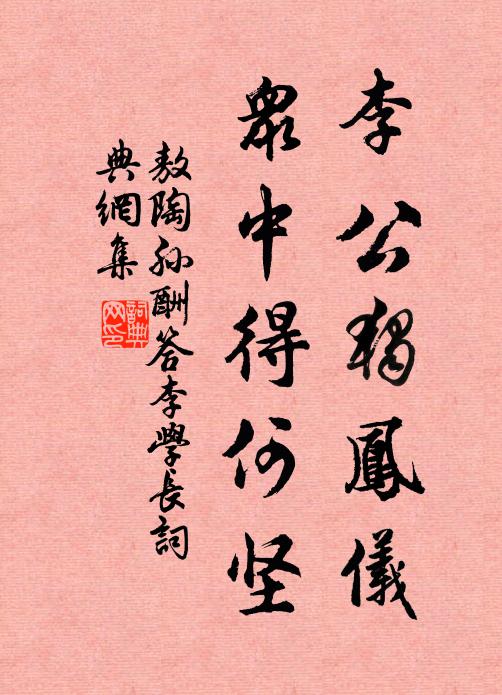 李公独鳳儀
眾中得何坚
敖陶孙酬答李學長詞
典網集
詞典网印